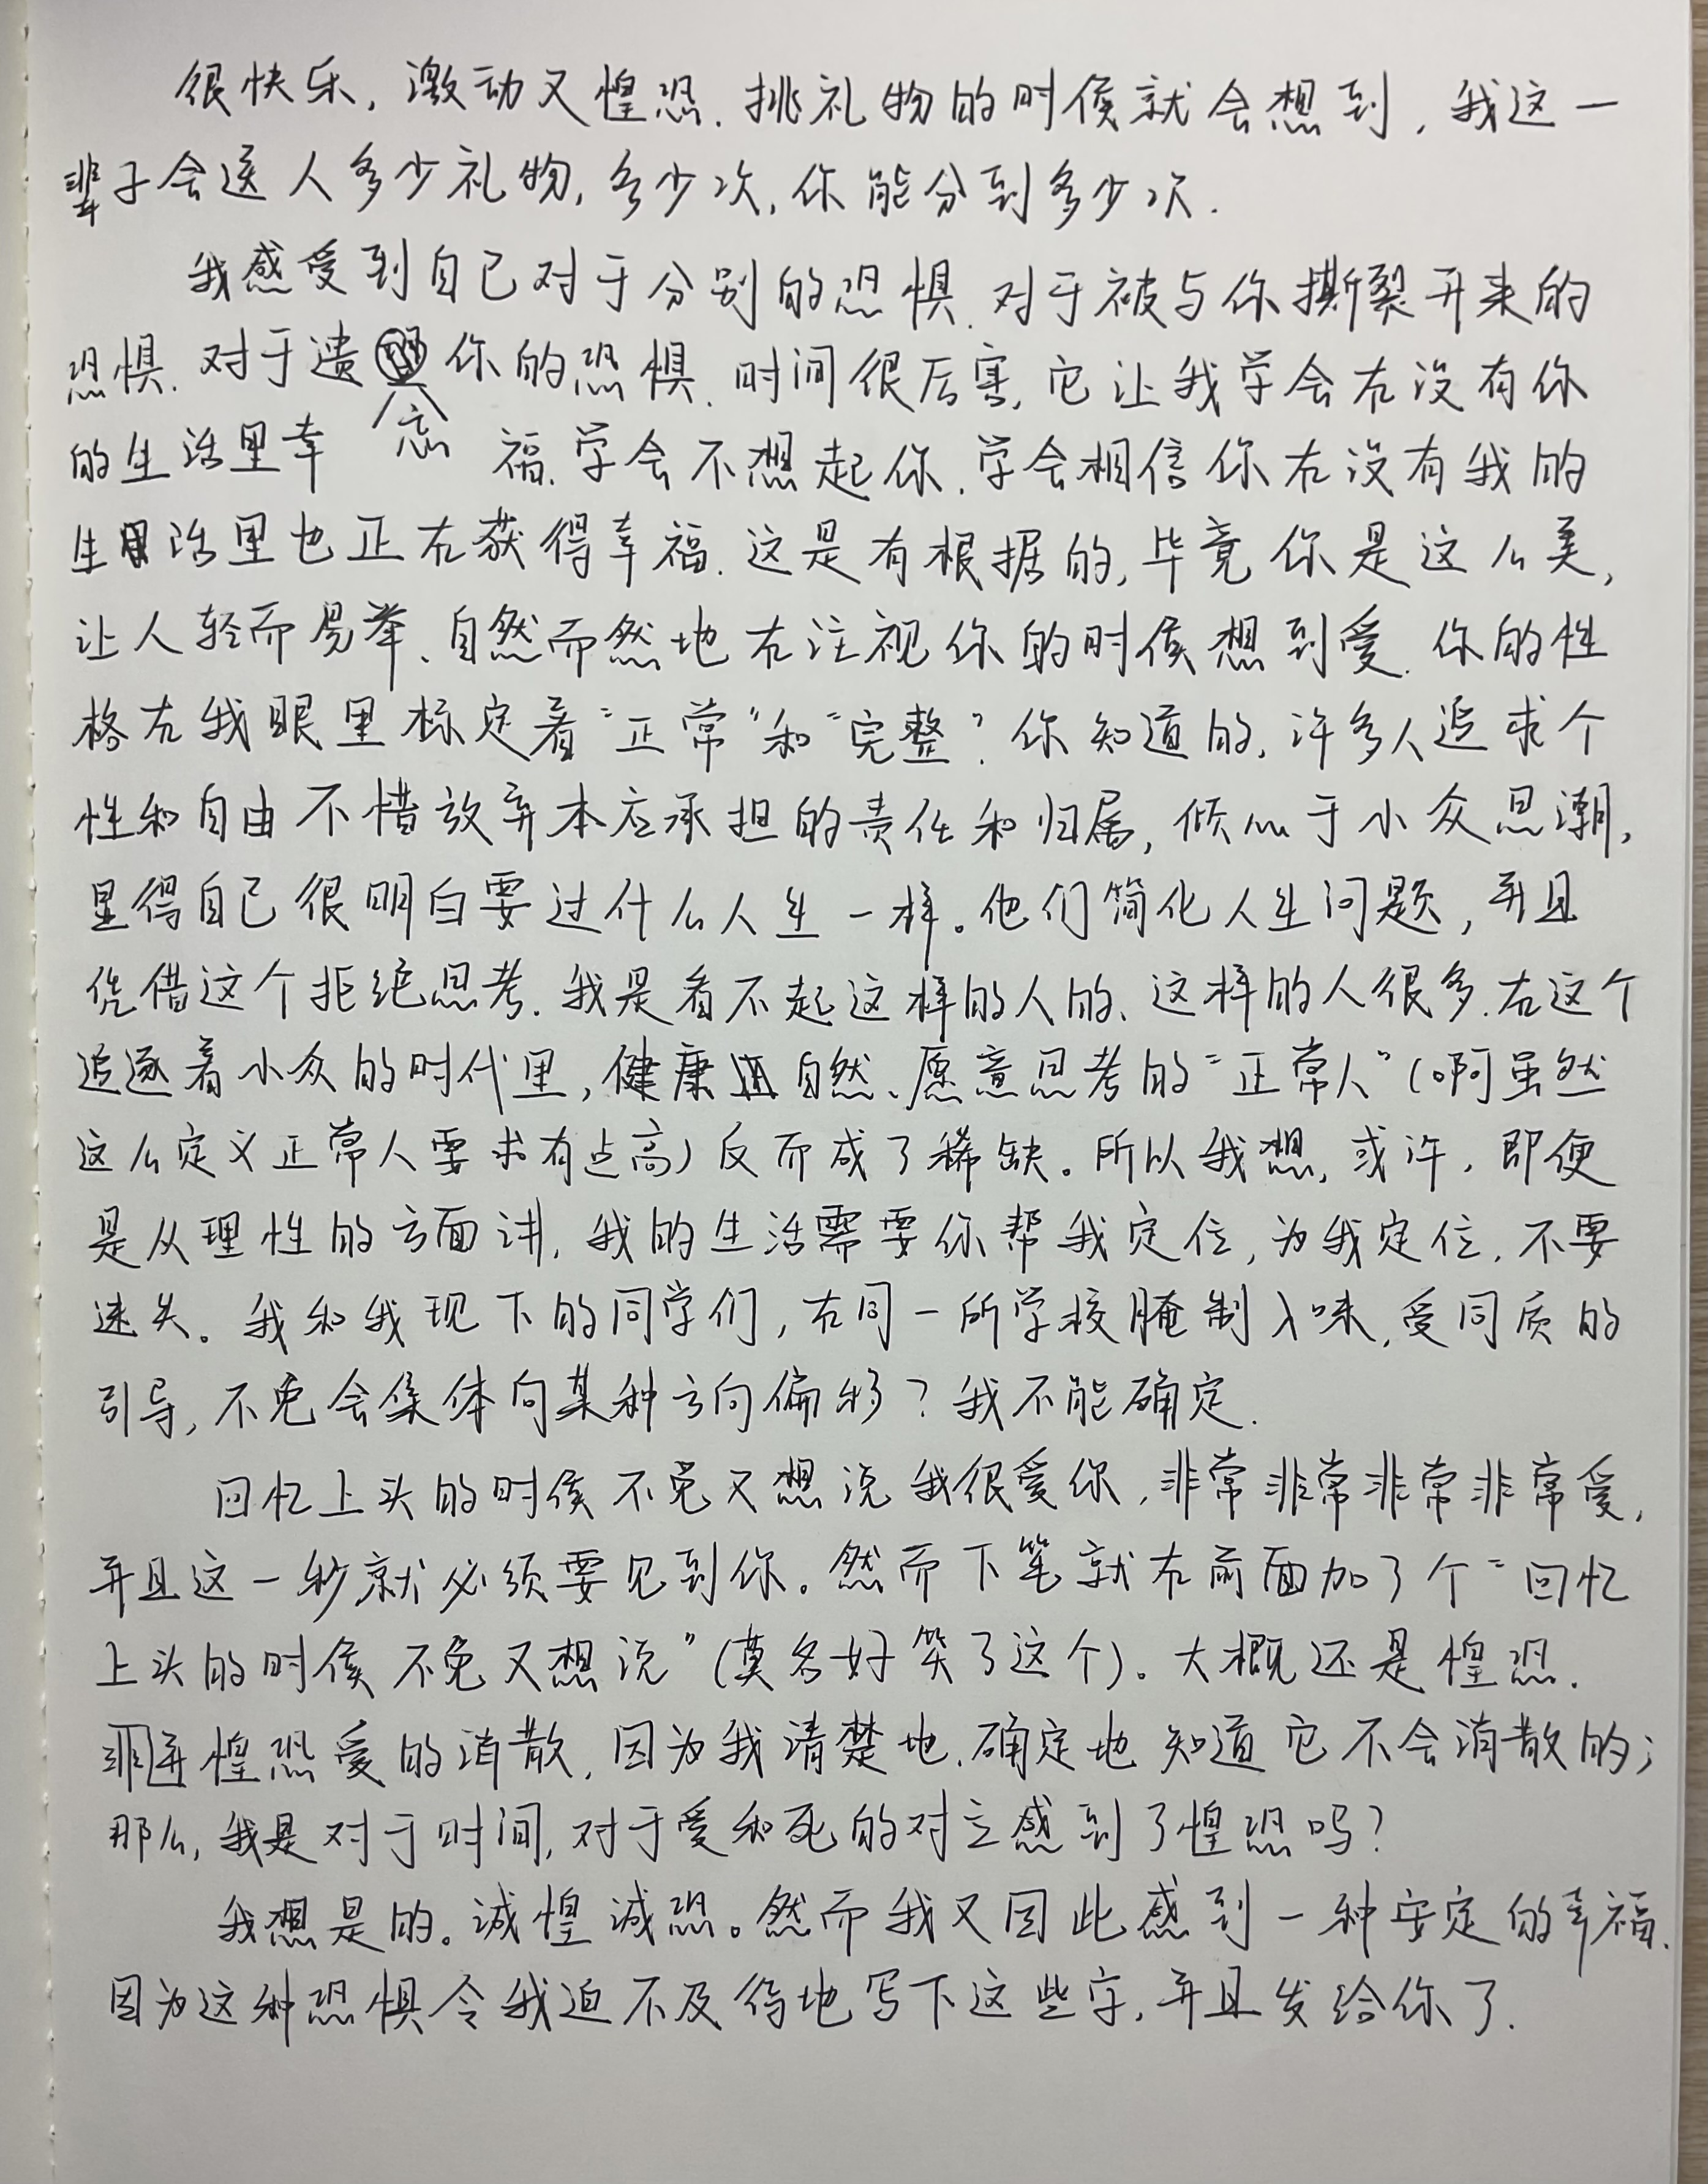 很快乐，激动又惶恐.挑礼物的时候就会想到，我这一
辈子会送人多少礼物，多少次，你能分到多少次.
我感受到自己对于分别的恐惧.对于被与你撕裂开来的
恐惧.对于遗忘你的恐惧.时间很厉害，它让我学会在没有你
的生活里幸福.学会不想起你.学会相信你在没有我的
生活里也正在获得幸福.这是有根据的，毕竟你是这么美，
让人轻而易举、自然而然地在注视你的时候想到爱.你的性
格在我眼里标定着“正常”和“完整”.你知道的，许多人追求个
性和自由不惜放弃本应承担的责任和归属，倾心于小众思潮，
显得自己很明白要过什么人生一样。他们简化人生问题，并且
凭借这个拒绝思考.我是看不起这样的人的、这样的人很多.在这个
追逐着小众的时代里，健康自然、愿意思考的“正常人”（啊虽然
这么定义正常人要求有点高）反而成了稀缺。所以我想，或许，即便
是从理性的方面讲，我的生活需要你帮我定位，为我定位，不要
迷失。我和我现下的同学们，在同一所学校腌制入味，受同质的
引导，不免会集体向某种方向偏移？我不能确定.
回忆上头的时候不免又想说我很爱你，非常非常非常非常爱，
并且这一秒就必须要见到你。然而下笔就在前面加了个“回忆
上头的时候不免又想说”（莫名好笑了这个）。大概还是惶恐.
非惶恐爱的消散，因为我清楚地、确定地知道它不会消散的；
那么，我是对于时间，对于爱和死的对立感到了惶恐吗？
我想是的。诚惶诚恐。然而我又因此感到一种安定的幸福.
因为这种恐惧令我迫不及待地写下这些字，并且发给你了.